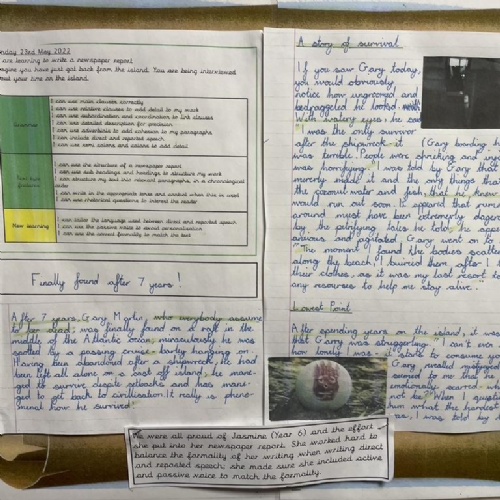 Monday 23rd May 2022
are learning to write a newspaper report
imagine you have just got back from the island. You are being interviewed
about your time on the island.
I can use main clauses correctly
I can use relative clauses to add detail to my work
I can use subordination and coordination to link clauses
I can use detailed description for precision
I can use adverbials to add cohesion in my paragraphs
I can include direct and reported speech
I can use semi colons and colons to add detail
I can use the structure of a newspaper report
I can use sub headings and headings to structure my work
I can structure my text into relevant paragraphs in a chronological
order
I can write in the appropriate tense and
I can use rhetorical questions to interest the reader
New learning
I can make the language used between direct and reported speech
I can use the passive voice to avoid personalisation
I can use the correct formality to match the text
Finally found after 7 years!
After 7 years, Gary Martin, who everybody assume
to be dead; was finally found on a raft in the
middle of the Atlantic ocean; miraculously he was
spotted by a passing cruise barely hanging on.
Having been abandoned after a shipwreck, he had
been left all alone on a cast off island, he mana-
ged to survive despite setbacks and has mana-
ged to get back to civilisation. It really is pheno-
menal how he survived.
A story of survival
If you saw Gary today,
you would obviously
notice how ungroomed and
bedraggled he looked.
With watery eyes, he sa
"I was the only survivor
after the shipwreck. it
was terrible. People were shrieking and
was horrifying". I was told by Gary that
merely middl it and the only things that
the coconut water and fish that he knew
would run out soon. It appeared that
around must have been extremely danger
by the petrifying tales he told, he appea
anxious and agitated, Gary went on to
"The moment I found the bodies scatter
along the beach, I buried them after I
their clothes, as it was my last resort to
any resources to help me stay alive."
Lowest Point
After spending years on the island, it was
that Gary was struggling. "I can't even
how lonely I was - it starts to consume yo
Gary recalled
seemed to me that
emotionally scarred
not be?" When I
them what the hardest
as, I was told by
We were all proud of Jasmine (Year 6) and the effort
she put into her newspaper report. She worked hard to
balance the formality of her writing when writing direct
and reported speech; she made sure she included active
and passive voice to match the formality.